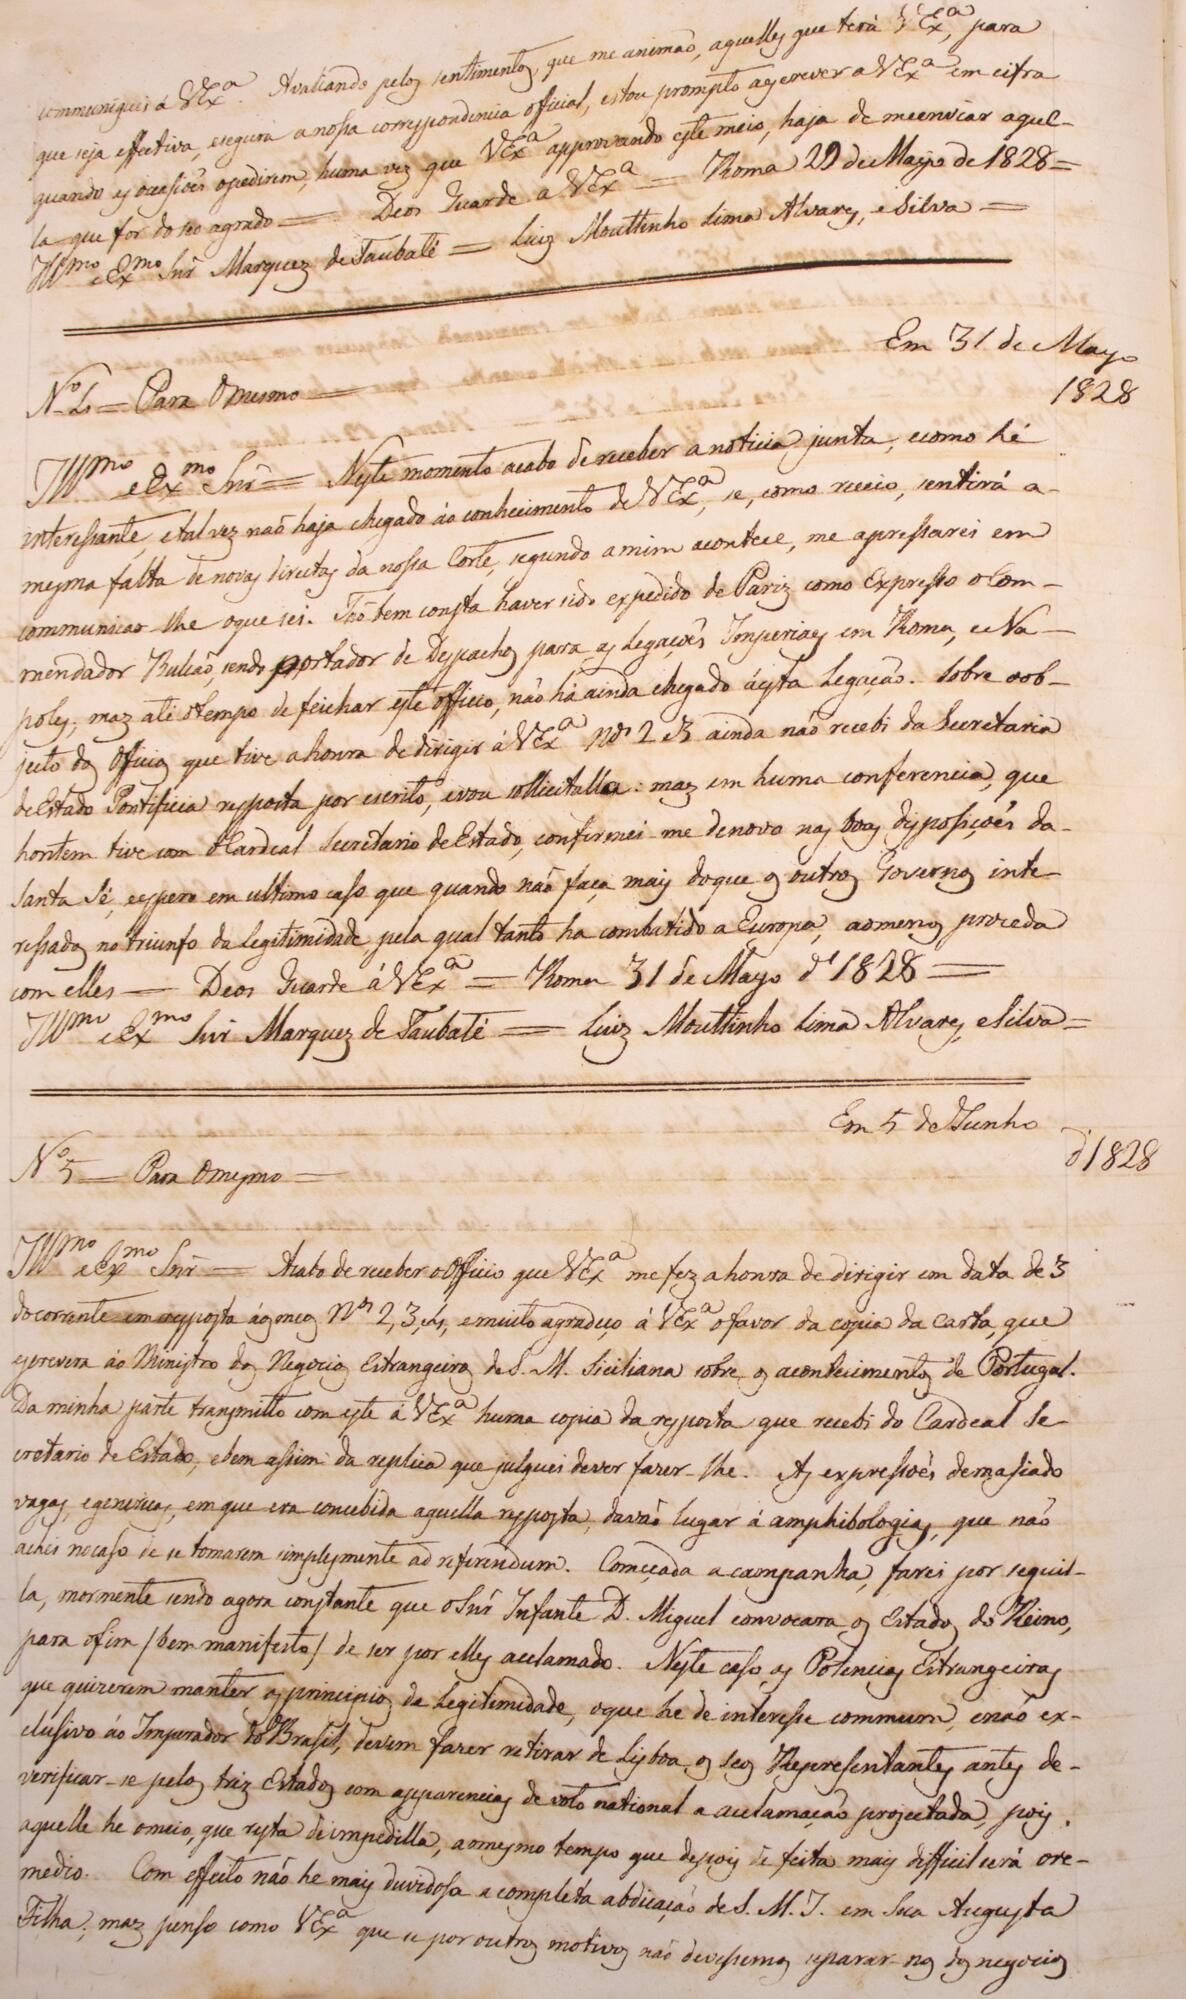 communiquei á VExª. Avaliando pelos sentimentos, que me animão, aquelles que terá VExª, para
que seja effectiva, esegura a nossa correspondencia official, estou prompto aescrever a VExª em cifra
quando as ocasioẽs opedirem, huma vez que VExª approvando este meio, haja de meenviar aquel-
la que for do seo agrado = Deos Guarde a VExª = Roma 29 de Mayo de 1828 =
Illmo eExmo Snr Marquez de Taubaté = Luiz Mouttinho Lima Alvares, eSilva =
Em 31 de Mayo
1828
Nº 4 = Para Omesmo =
Illmo eExmo Snr = Neste momento acabo de receber a noticia junta, ecomo hé
interessante, etalvez naõ haja chegado áo conhecimento de VExª, se, como receio, sentirá a-
mesma falta de novas directas da nossa Corte, segundo amim acontece, me apressarei em
communicar-lhe oque sei. Taõ bem consta haver sido expedido de Pariz como Expresso o Com-
mendador Bulcaõ, sendo portador de Despachos para as Legaçoẽs Imperiaes em Roma, e Na-
poles; maz até otempo de feichar este officio, não há ainda chegado áesta Legação. Sobre oob-
jecto dos Officios que tive ahonra de dirigir á VExª Nos 2 e3 ainda não recebi da Secretaria
de Estado Pontificia resposta por escrito, evou sollicitalla: maz em huma conferencia, que
hontem tive com oCardeal Secretario de Estado, confirmei-me denovo nas boas disposiçoẽs da-
Santa Sé, eespero em ultimo caso que quando não faça mais doque os outros Governos inte-
ressados no triunfo da legitimidade, pela qual tanto ha combatido a Europa, aomenos proceda
com elles = Deos Guarde á VExª = Roma 31 de Mayo d' 1828 =
Illmo eExmo Snr Marquez de Taubaté = Luiz Mouttinho Lima Alvares, eSilva =
Em 5 de Junho
d' 1828
Nº 5 = Para Omesmo =
Illmo eExmo Snr = Acabo de receber oOfficio que VExª me fez ahonra de dirigir em data de 3
docorrente em resposta áos meos Nos 2, 3, e4, emuito agradeço á VExª ofavor da copia da Carta, que
escrevera áo Ministro dos Negocios Estrangeiros de S. M. Siciliana sobre os acontecimentos de Portugal.
Da minha parte transmitto com este á VExª huma copia da resposta que recebi do Cardeal Se-
cretario de Estado, ebem assim da replica que julguei dever fazer-lhe. As expressoẽs demasiado
vagas, egenericas, em que era concebida aquella resposta, davão lugar á amphibologias, que não
achei nocaso de se tomarem simplesmente ad referendum. Começada a campanha, farei por seguil-
la, mormente sendo agora constante que oSnr Infante D. Miguel convocara os Estados do Reino,
para ofim /bem manifesto/ de ser por elles acclamado. Neste caso as Potencias Estrangeiras
que quizerem manter os principios da Legitimidade, oque he de interesse commum, enão ex-
clusivo áo Imperador do Brasil, devem fazer retirar de Lisboa os seos Representantes antes de-
verificar-se pelos trez Estados com apparencias de voto national a acclamação projectada, pois
aquelle he omeio, que resta deimpedilla, aomesmo tempo que depois de feita mais difficil será ore-
medio. Com effeito não he mais duvidosa a completa abdicação de S. M. I. em Sua Augusta
Filha; maz penso como VExª que se por outros motivos não devessemos separar-nos dos negocios